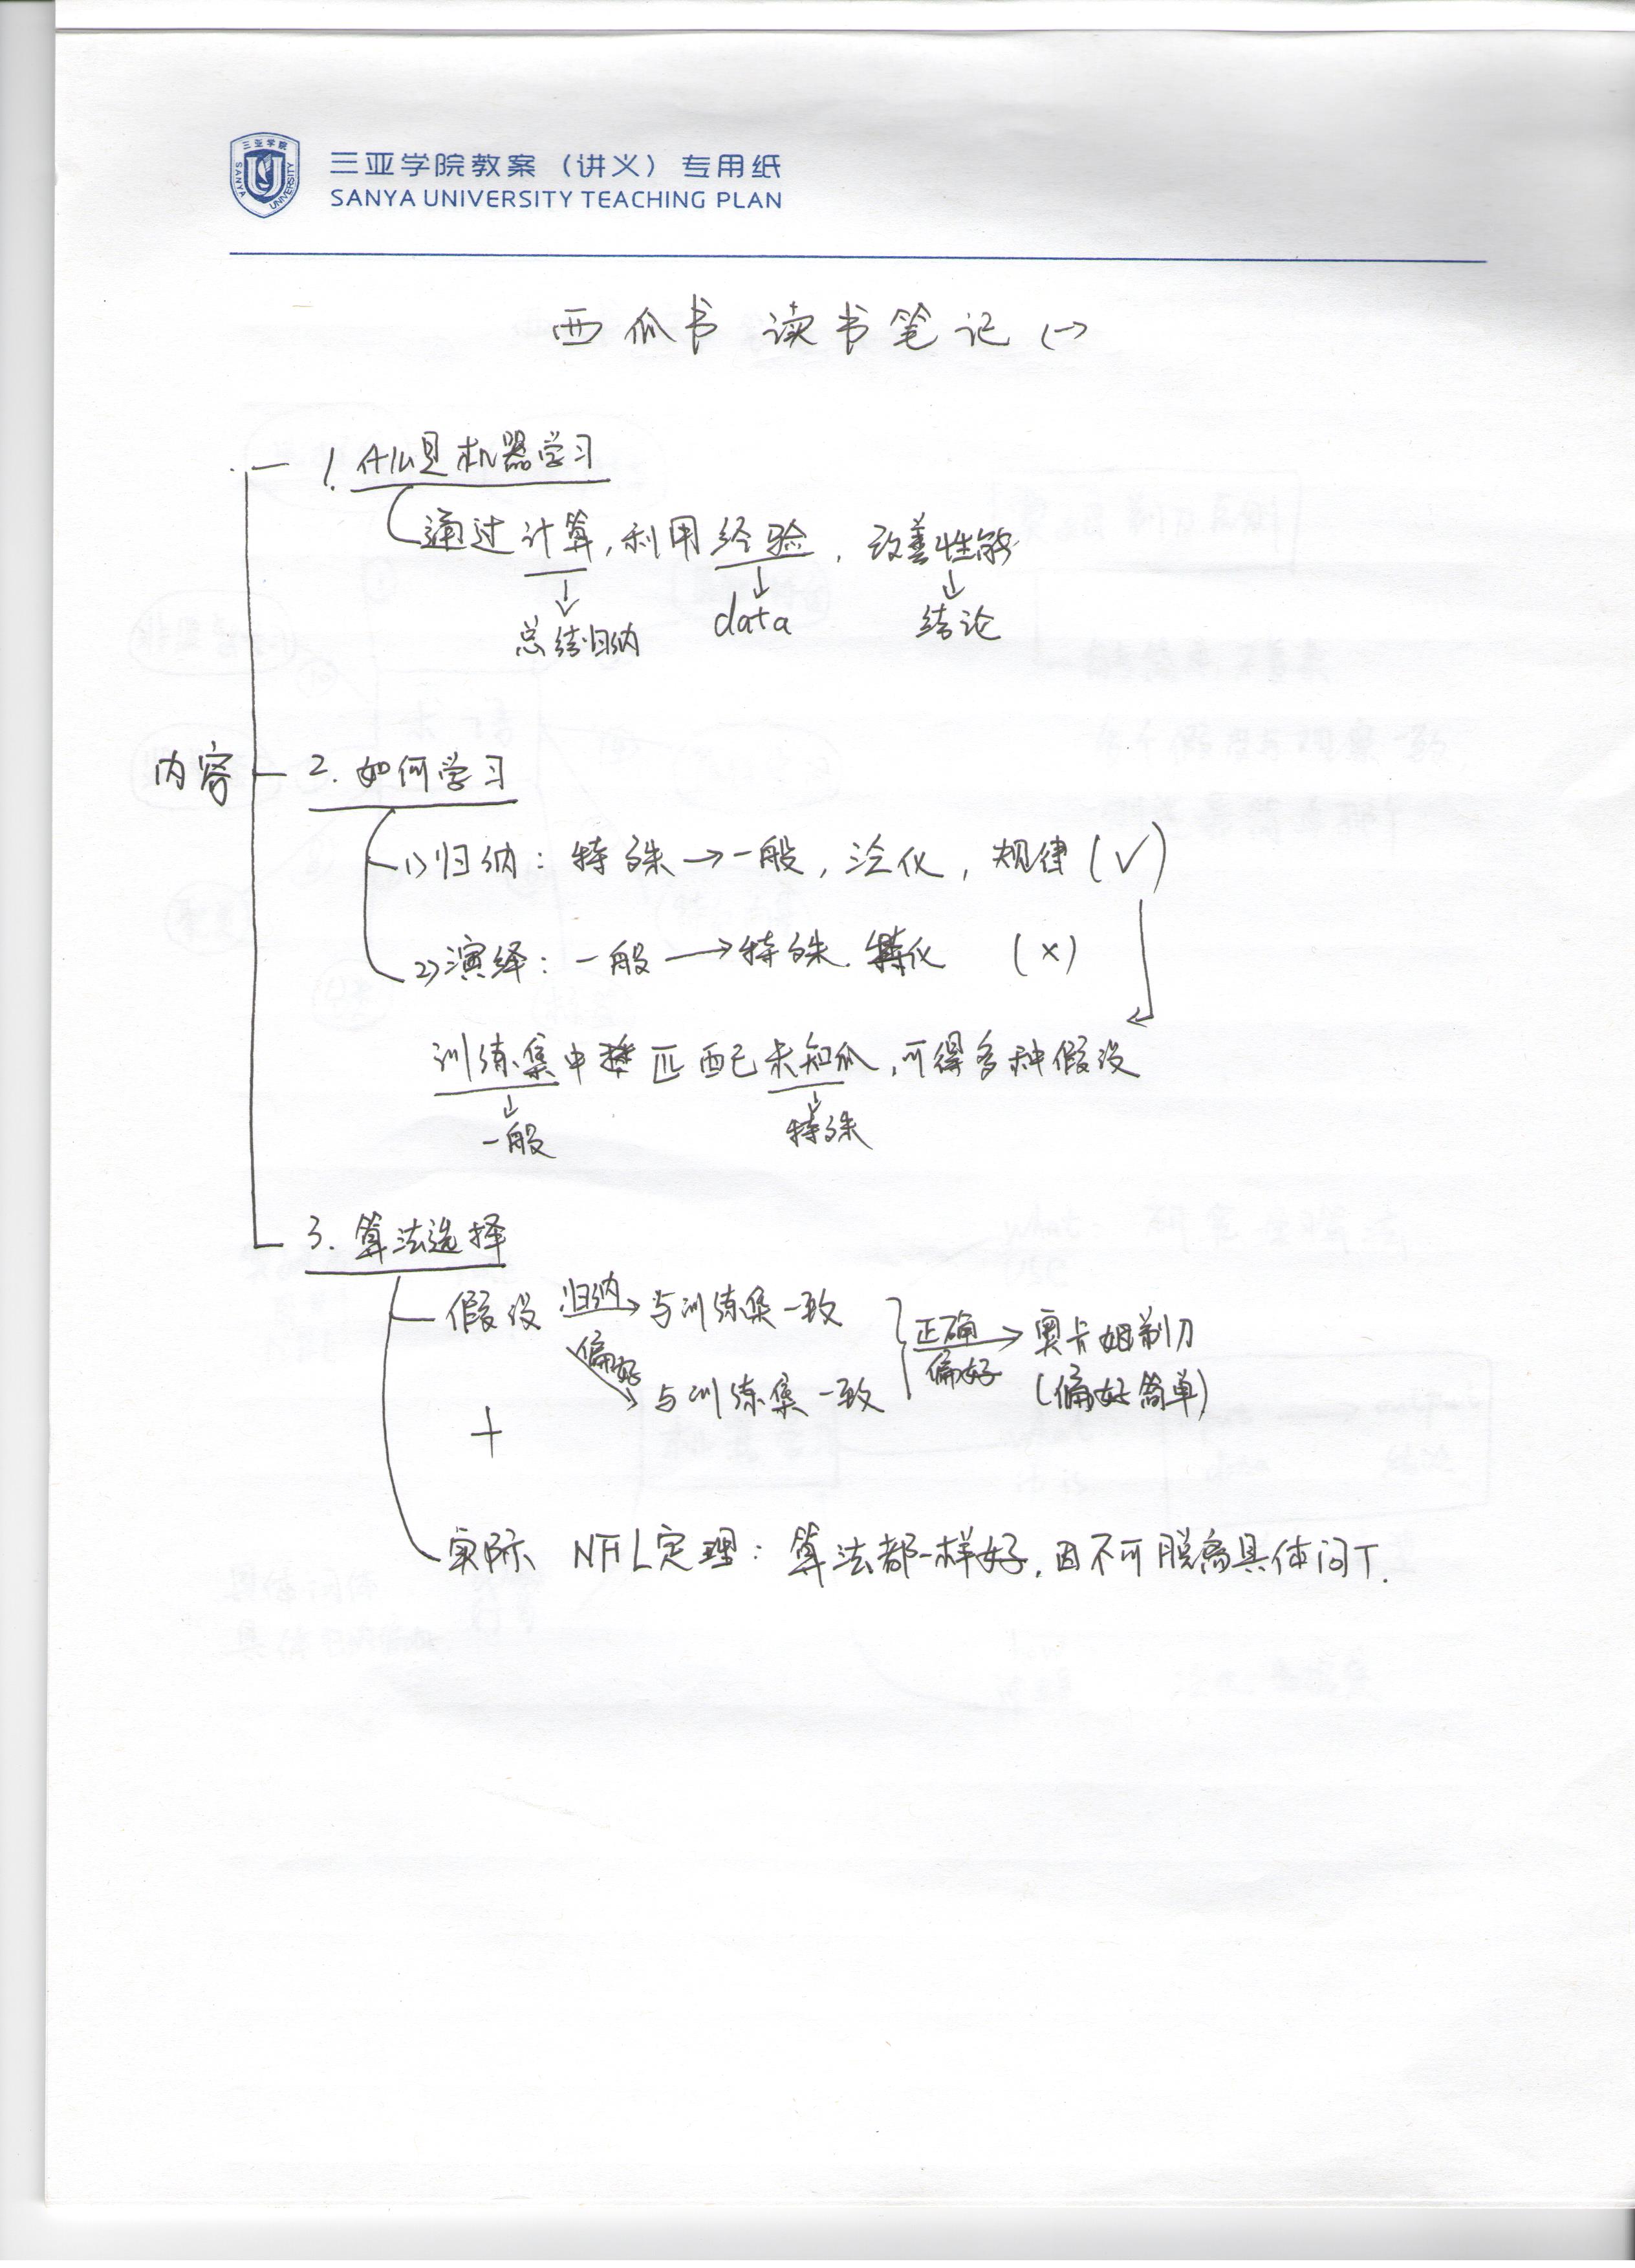 三亚学院
SANYA UNIVERSITY
三亚学院教案（讲义）专用纸
SANYA UNIVERSITY TEACHING PLAN
西瓜书 读书笔记(一)
内容
1. 什么是机器学习
通过计算,利用经验,改善性能
总结归纳 data 结论
2. 如何学习
1)归纳: 特殊→一般, 泛化, 规律(√)
2)演绎: 一般→特殊. 特化 (×)
训练集中 匹配已未知瓜,可得多种假设
一般 特殊
3. 算法选择
假设 归纳→与训练集一致
偏好 与训练集一致
正确→奥卡姆剃刀
偏好 (偏好简单)
+
实际 NFL定理: 算法都一样好,因不可脱离具体问T.